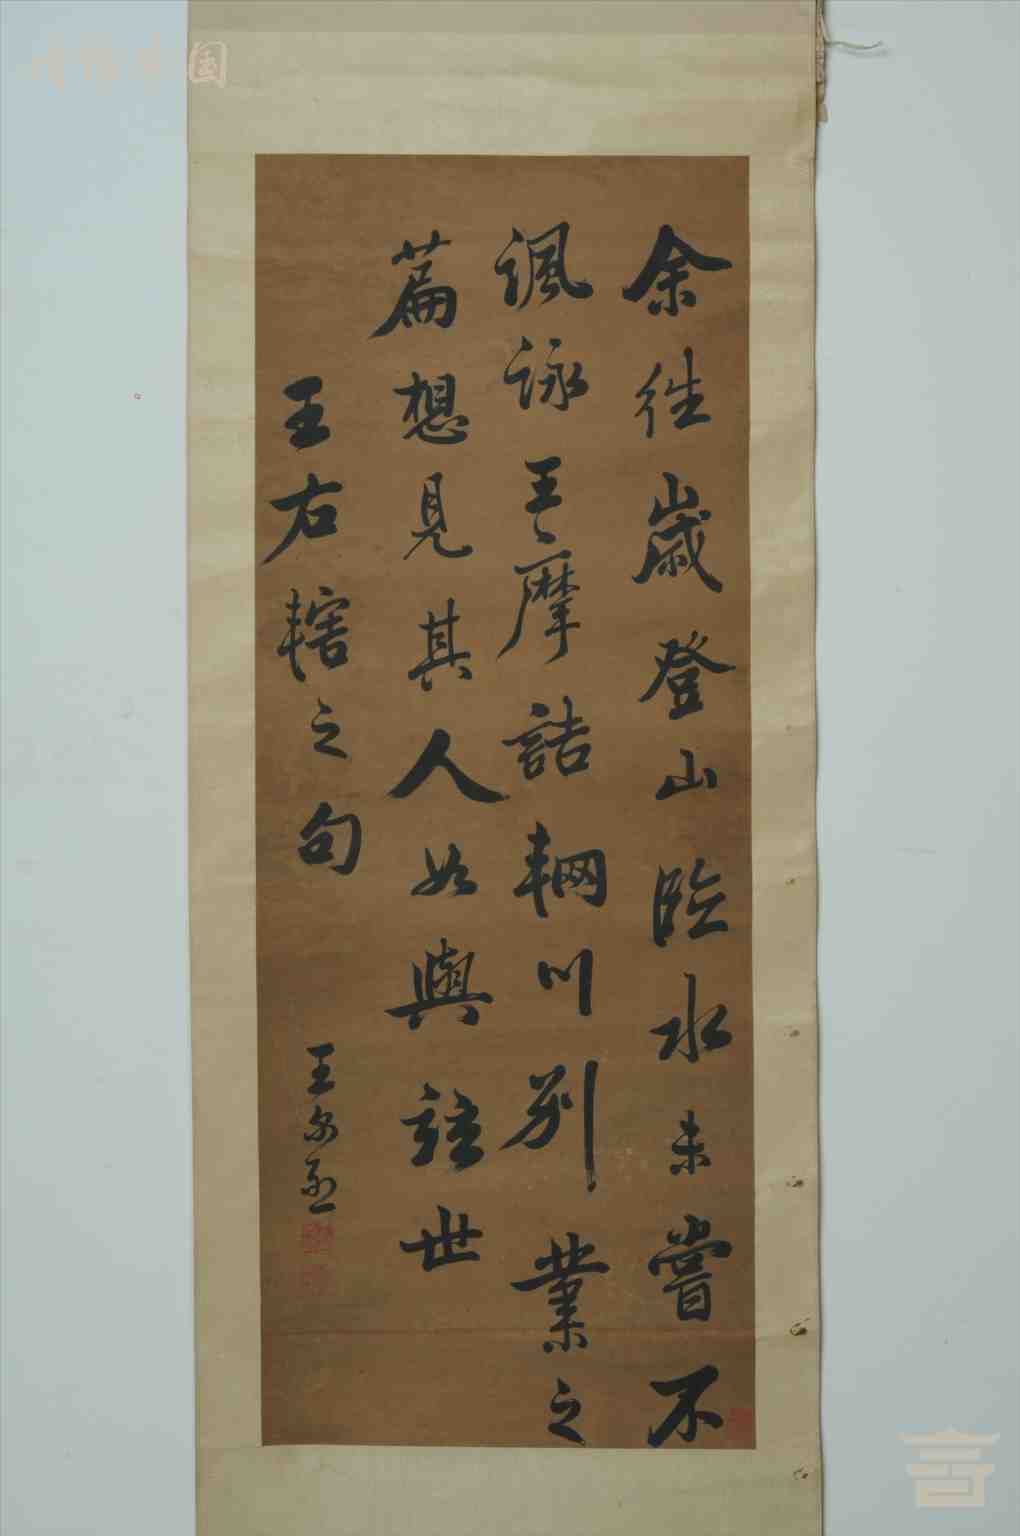 余往歲登山臨水未嘗不
諷詠王摩詰輞川別業之
篇想見其人如與並世
王右轄之句
王
国